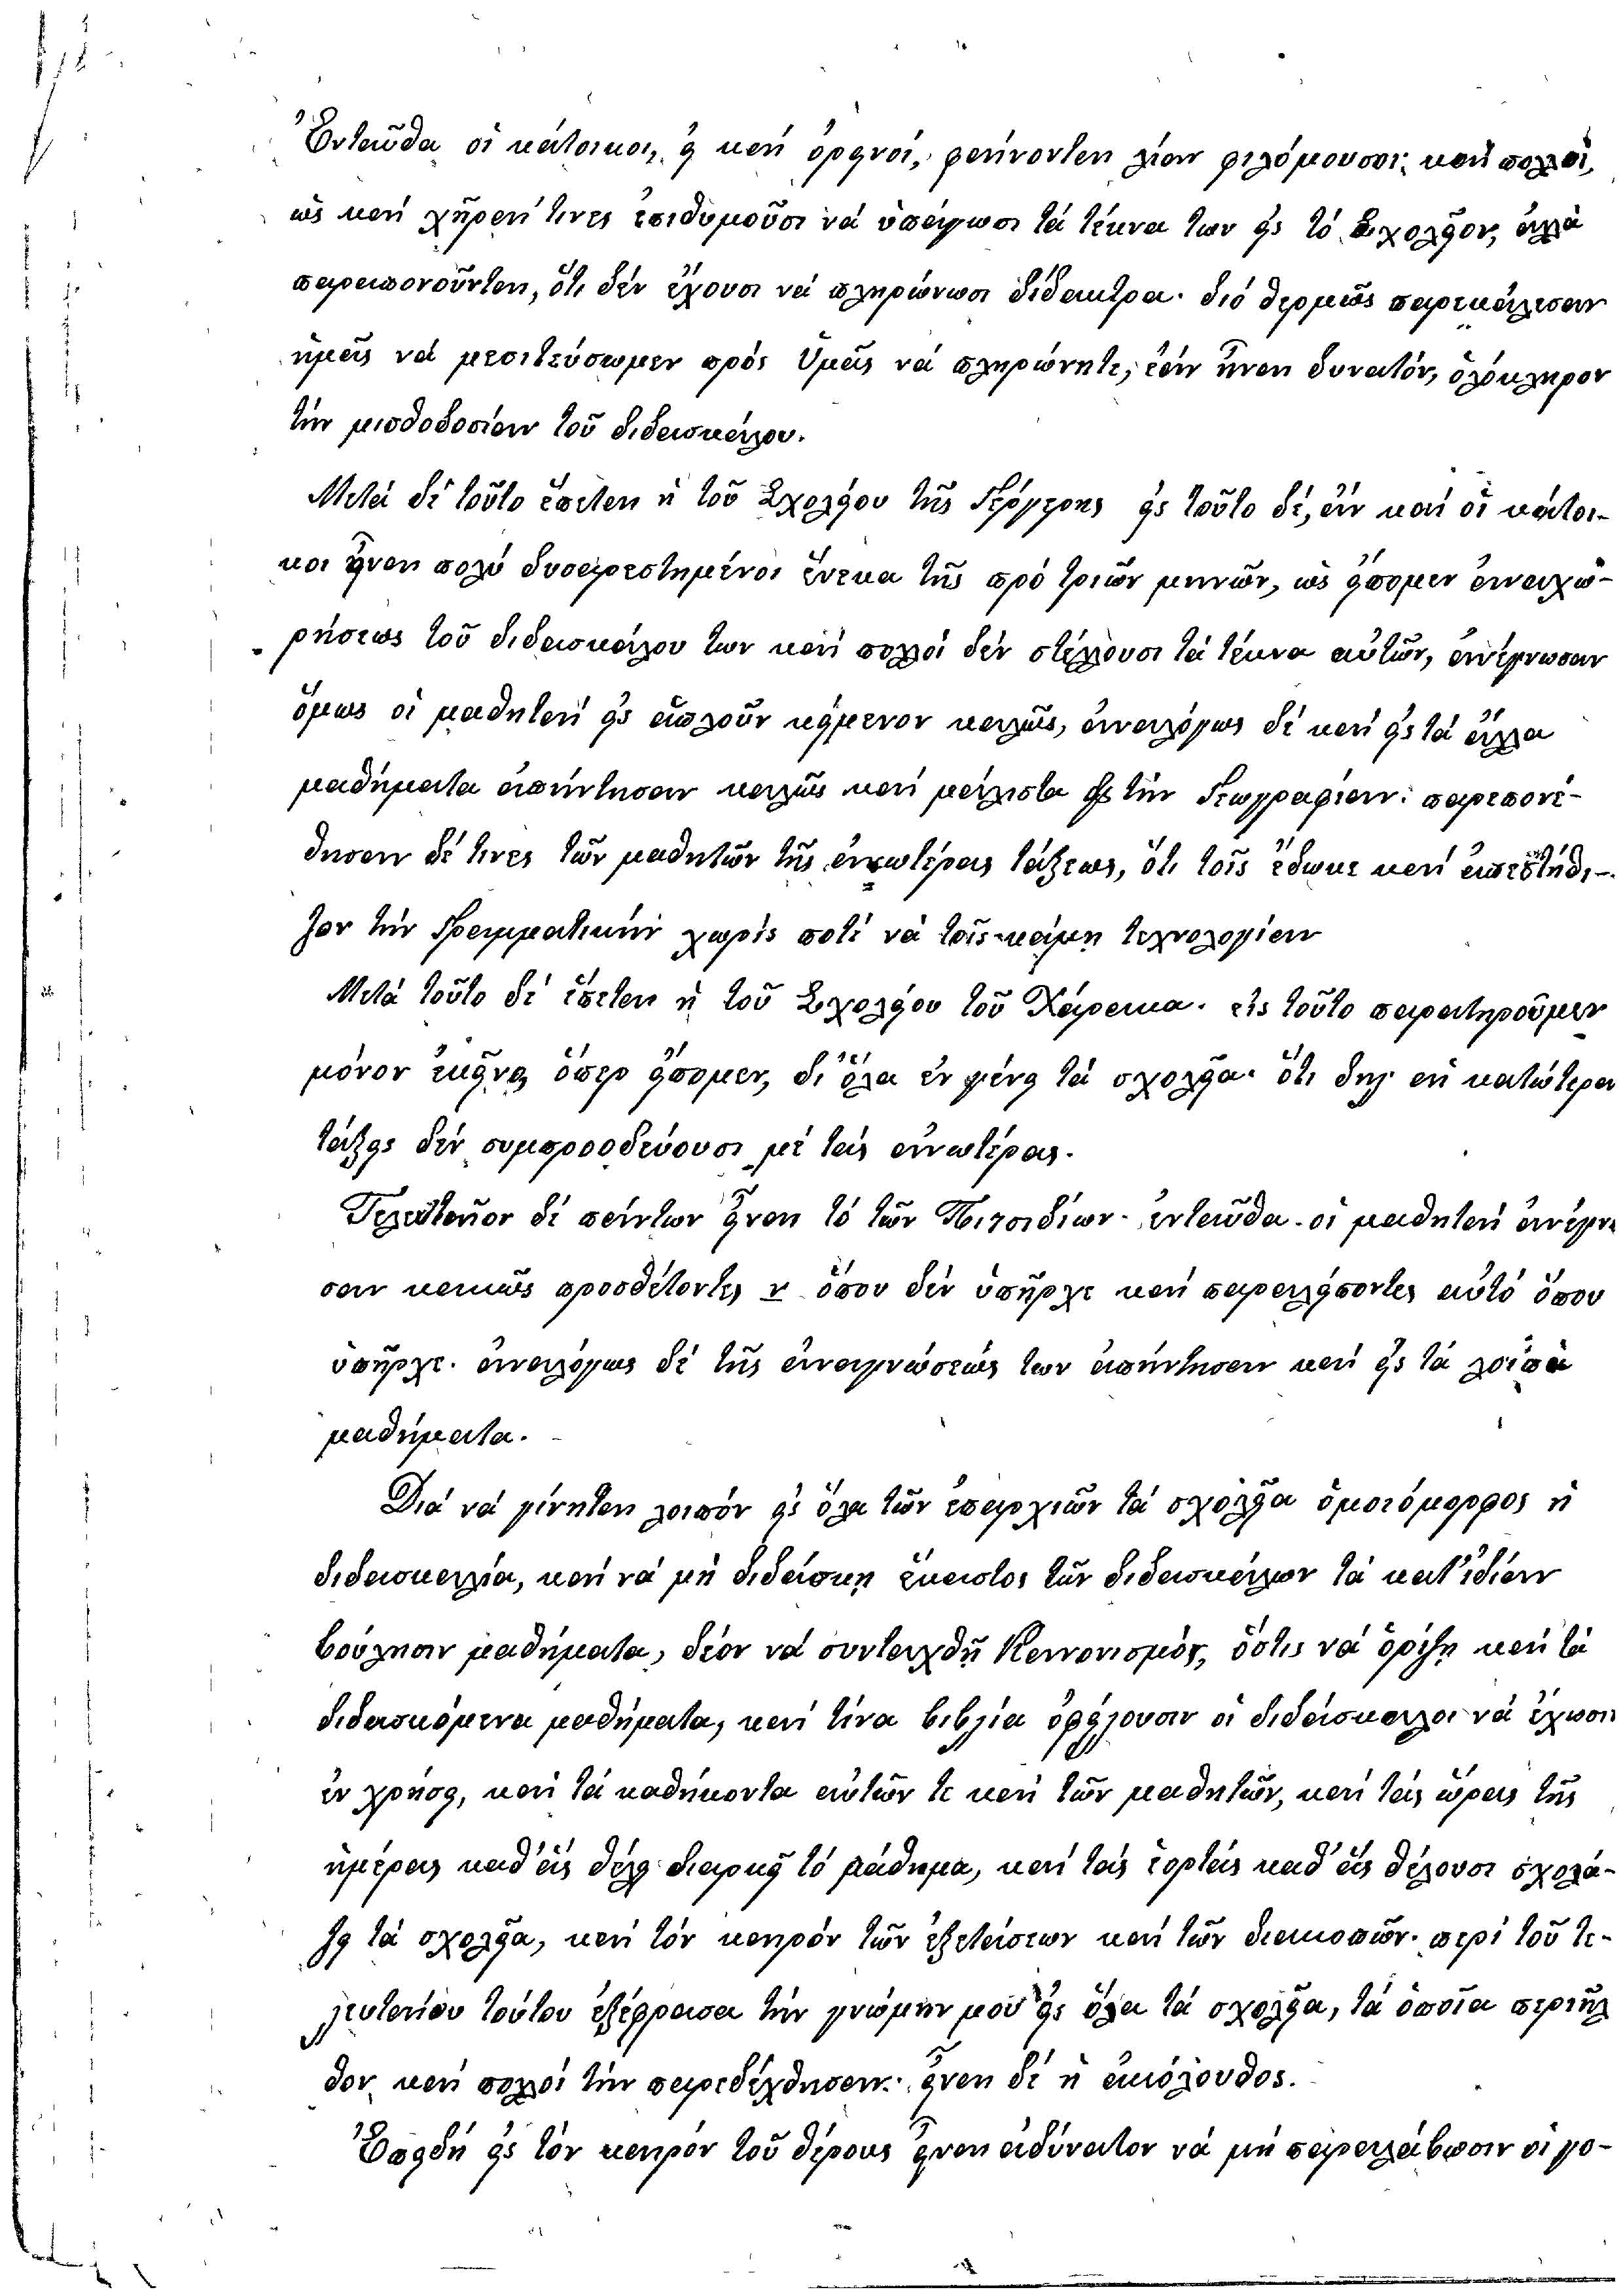 Ἐνταῦθα οἱ κάτοικοι, εἰ καὶ ὀρεινοί, φαίνονται λίαν φιλόμουσοι, καὶ πολλοί,
ὡς καὶ χῆραί τινες ἐπιθυμοῦσι νά ὑπάγωσι τά τέκνα των εἰς τό Σχολεῖον, ἀλλά
παραπονοῦνται, ὅτι δέν ἔχουσι νά πληρώνωσι δίδακτρα· διό θερμῶς παρεκάλεσαν
ἡμᾶς νά μεσιτεύσωμεν πρός Ὑμᾶς νά πληρώνητε, ἐάν ἦναι δυνατόν, ὁλόκληρον
τήν μισθοδοσίαν τοῦ διδασκάλου.
Μετά δέ τοῦτο ἕπεται ἡ τοῦ Σχολείου τῆς Γέργερης εἰς τοῦτο δέ, ἄν καί οἱ κάτοι-
κοι εἶναι πολύ δυσαρεστημένοι ἕνεκα τῆς πρό τριῶν μηνῶν, ὡς εἴπομεν ἀναχω-
ρήσεως τοῦ διδασκάλου των καί πολλοί δέν στέλλουσι τά τέκνα αὐτῶν, ἀνέγνωσαν
ὅμως οἱ μαθηταί εἰς ἁπλοῦν κείμενον καλῶς, ἀναλόγως δέ καί εἰς τά ἄλλα
μαθήματα ἀπήντησαν καλῶς καί μάλιστα εἰς τήν Γεωγραφίαν· παρεπονέ-
θησαν δέ τινες τῶν μαθητῶν τῆς ἀνωτέρας τάξεως, ὅτι τοῖς ἔδωκε καί ἀπεστήθι-
ζον τήν Γραμματικήν χωρίς ποτέ νά τοῖς κάμῃ τεχνολογίαν
Μετά τοῦτο δέ ἕπεται ἡ τοῦ Σχολείου τοῦ Χάρακα· εἰς τοῦτο παρατηροῦμεν
μόνον ἐκεῖνο, ὅπερ εἴπομεν, δι' ὅλα ἐν γένει τά σχολεῖα· ὅτι δηλ. αἱ κατώτεραι
τάξεις δέν συμπροοδεύουσι μέ τάς ἀνωτέρας.
Τελευταῖον δέ πάντων εἶναι τό τῶν Πιτσιδίων· ἐνταῦθα οἱ μαθηταί ἀνέγνω
σαν κακῶς προσθέτοντες ν ὅπου δέν ὑπῆρχε καί παραλείποντες αὐτό ὅπου
ὑπῆρχε· ἀναλόγως δέ τῆς ἀναγνώσεώς των ἀπήντησαν καί εἰς τά λοιπά
μαθήματα.
Διά νά γίνηται λοιπόν εἰς ὅλα τῶν ἐπαρχιῶν τά σχολεῖα ὁμοιόμορφος ἡ
διδασκαλία, καί νά μή διδάσκῃ ἕκαστος τῶν διδασκάλων τά κατ' ἰδίαν
βούλησιν μαθήματα, δέον νά συνταχθῇ Κανονισμός, ὅστις νά ὁρίζῃ καί τά
διδασκόμενα μαθήματα, καί τίνα βιβλία ὀφείλουσιν οἱ διδάσκαλοι νά ἔχωσιν
ἐν χρήσει, καί τά καθήκοντα αὐτῶν τε καί τῶν μαθητῶν, καί τάς ὥρας τῆς
ἡμέρας καθ' ἅς θέλει διαρκεῖ τό μάθημα, καί τάς ἑορτάς καθ' ἅς θέλουσι σχολά-
ζει τά σχολεῖα, καί τόν καιρόν τῶν ἐξετάσεων καί τῶν διακοπῶν· περί τοῦ τε-
λευταίου τούτου ἐξέφρασα τήν γνώμην μου εἰς ὅλα τά σχολεῖα, τά ὁποῖα περιῆλ
θον καί πολλοί τήν παρεδέχθησαν· εἶναι δέ ἡ ἀκόλουθος.
Ἐπειδή εἰς τόν καιρόν τοῦ θέρους εἶναι ἀδύνατον νά μή παραλάβωσιν οἱ γο-